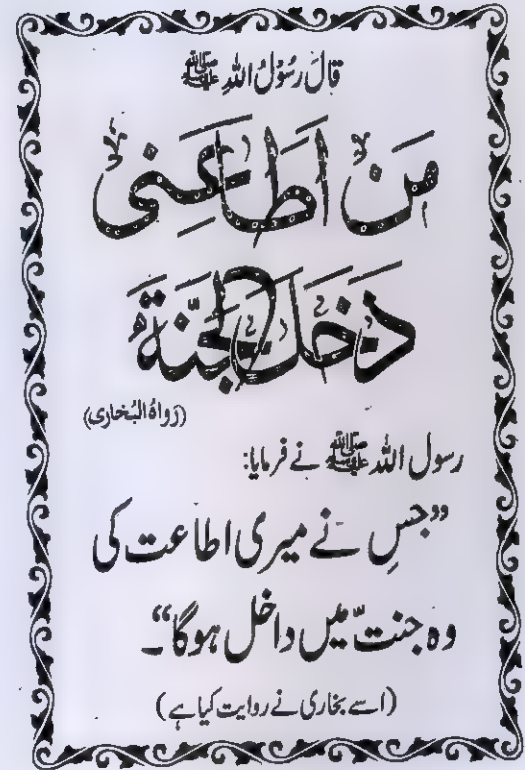 قَالَ رَسُوْلُ اللّٰهِ ﷺ
مَنْ اَطَاعَنِیْ
دَخَلَ الْجَنَّةَ
(رَوَاهُ الْبُخَارِی)
رسول اللہ ﷺ نے فرمایا:
”جس نے میری اطاعت کی
وہ جنتّ میں داخل ہوگا“۔
(اسے بخاری نے روایت کیا ہے)